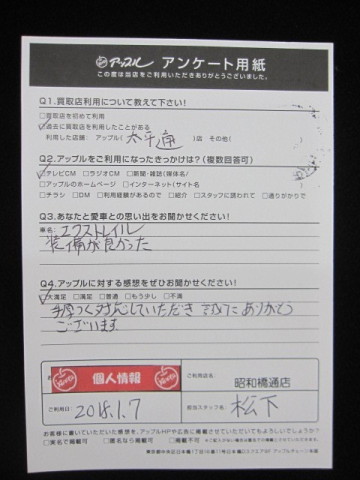 アップル アンケート用紙
この度は当店をご利用いただきありがとうございました。
Q1.買取店利用について教えて下さい!
□買取店を初めて利用
□過去に買取店を利用したことがある
利用した店舗： アップル( 太平通 )店 その他(
Q2.アップルをご利用になったきっかけは?(複数回答可)
□テレビCM □ラジオCM □新聞・雑誌(媒体名/
□アップルのホームページ □インターネット(サイト名
□チラシ □DM □利用経験があるので □紹介 □スタッフに誘われて □通りがかりで
Q3.あなたと愛車との思い出をお聞かせください!
車名: エクストレイル
装備が良かった
Q4.アップルに対する感想をぜひお聞かせください!
□大満足 □満足 □普通 □もう少し □不満
手厚つく対応していただき ありがとう
ございます
個人情報
ご利用店名: 昭和橋通店
ご利用日 2018.1.7
担当スタッフ名: 松下
お客様に書いていただいた感想を、アップルHPや広告に掲載させていただいてもよろしいでしょうか?
□実名で掲載可 □匿名なら掲載可 □掲載不可